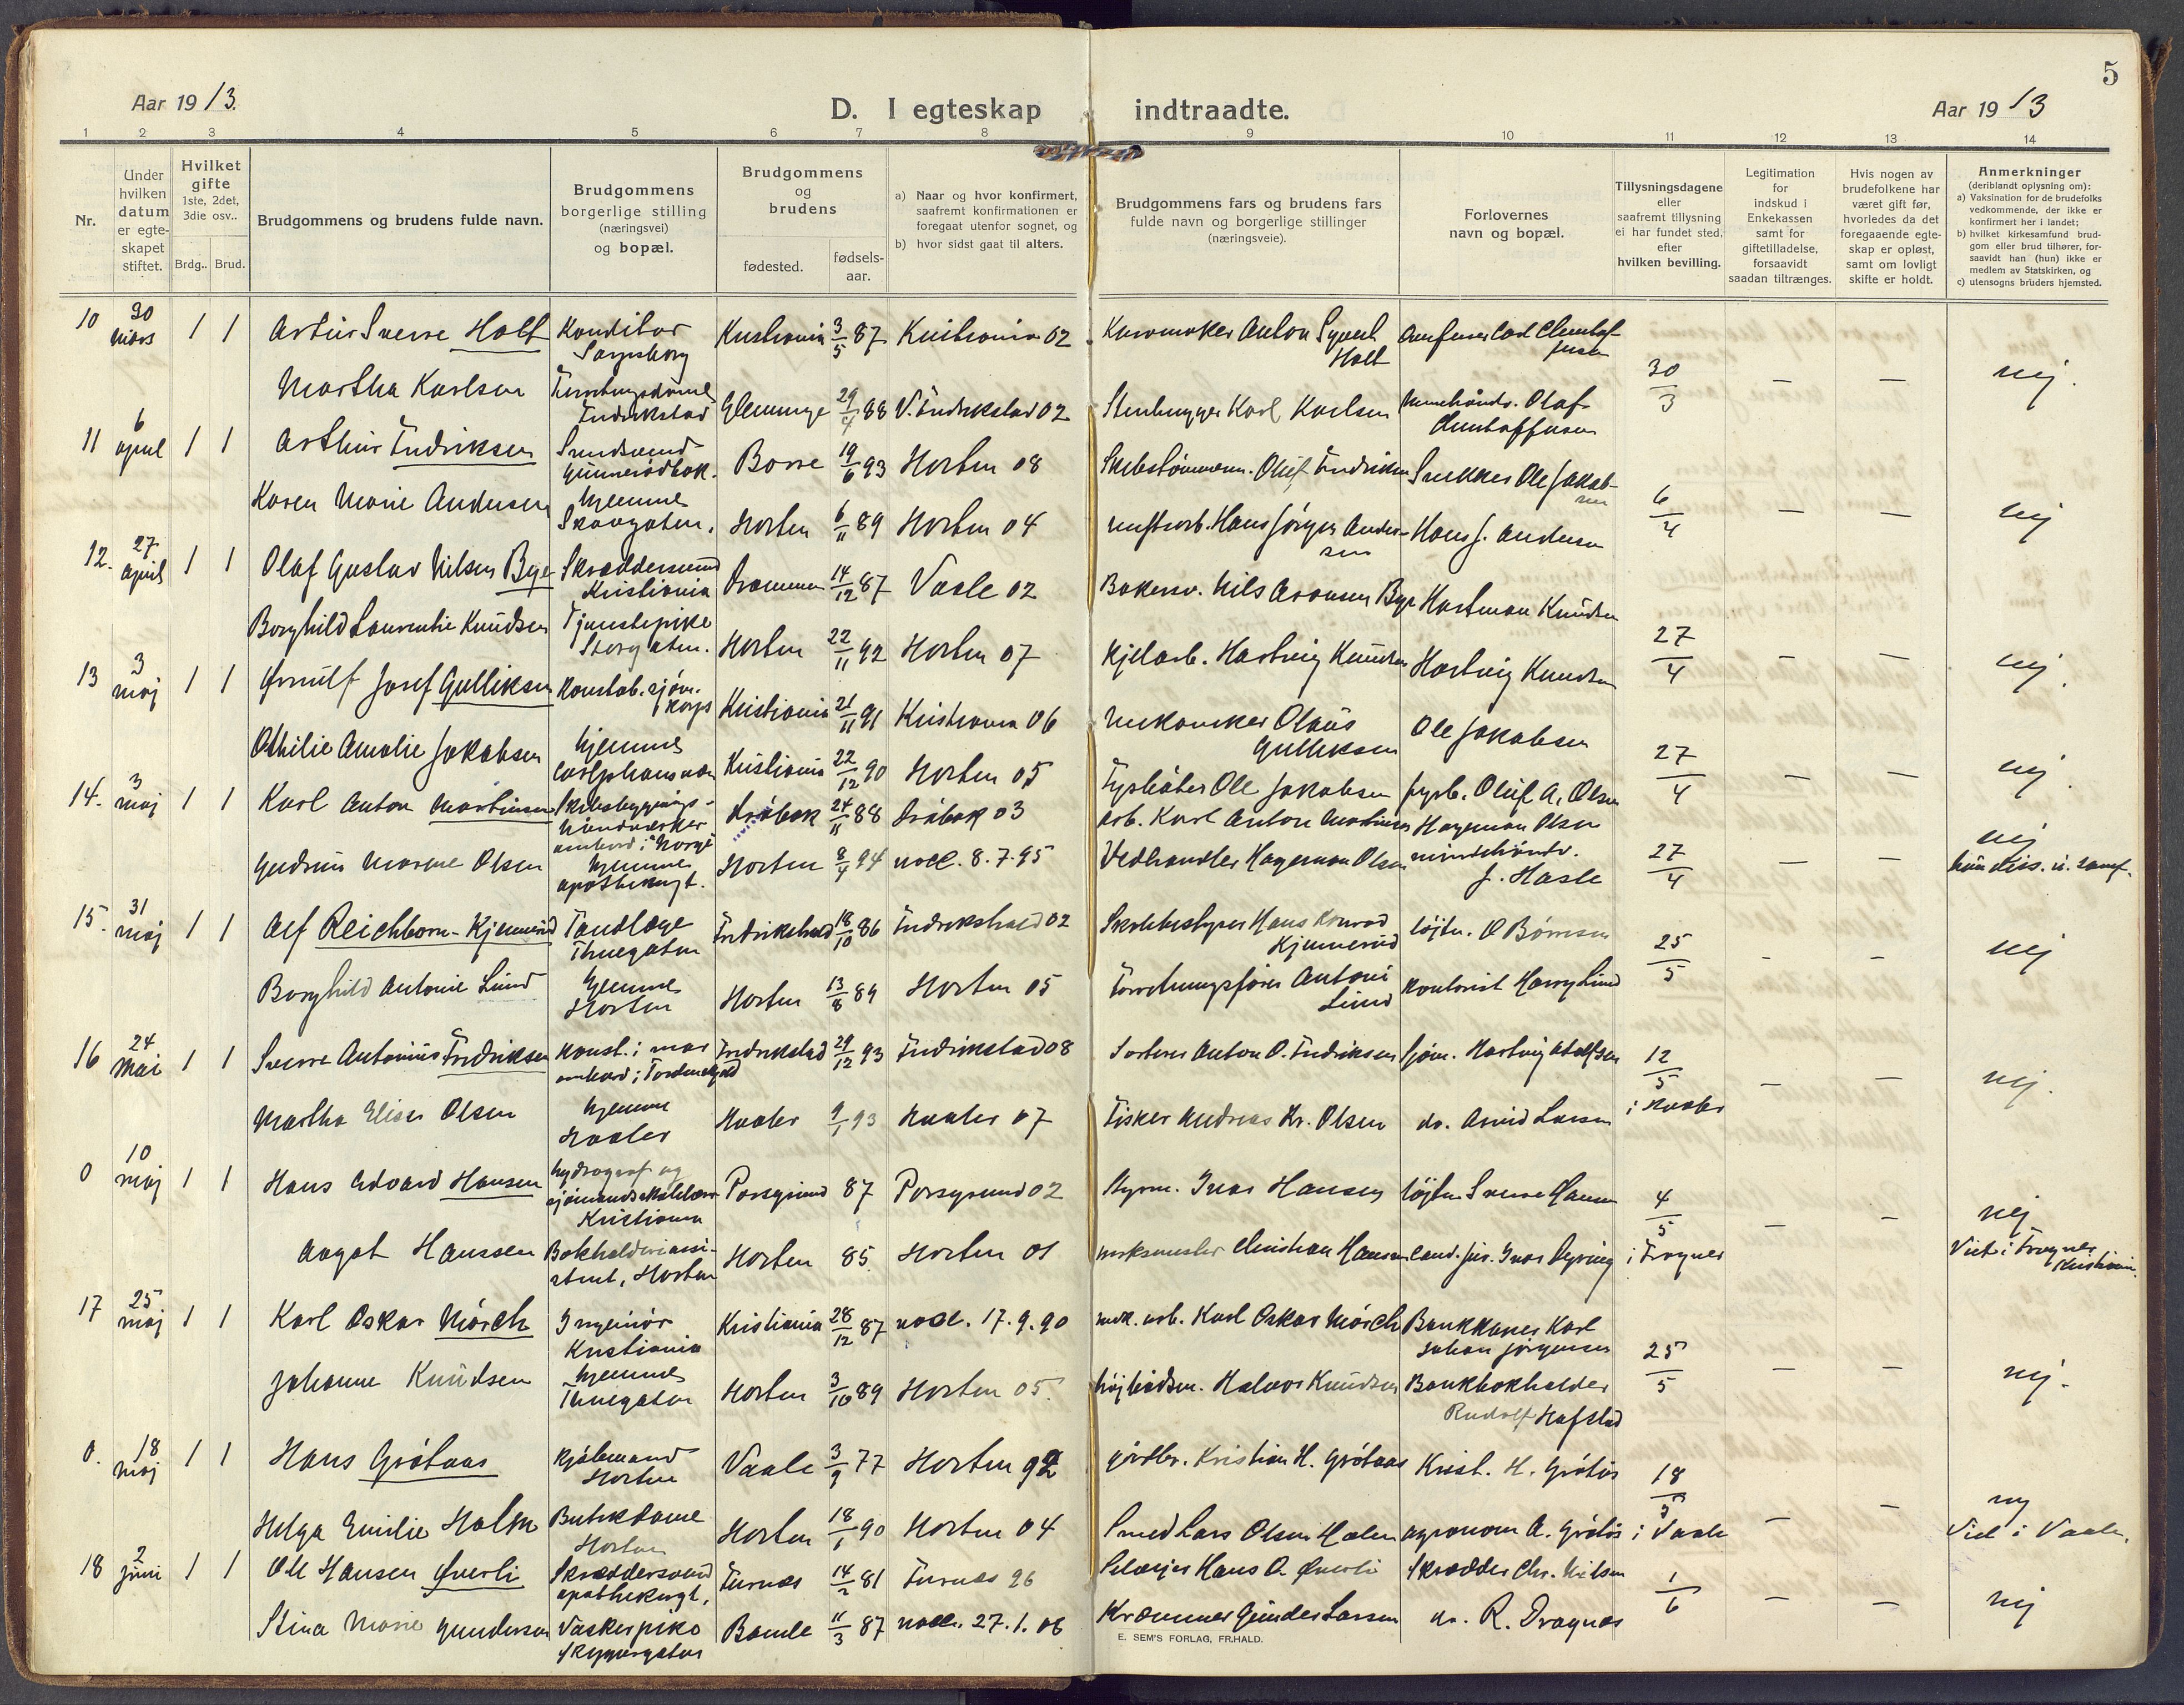 5
Aar 1913.
D. I egteskap indtraadte.
Aar 1913
1 2 3 4 5 6 7 8 9 10 11 12 13 14
Nr.
Under hvilken datum er egte-skapet stiftet.
Hvilket gifte 1ste, 2det, 3die osv..
Brdg.. Brud.
Brudgommens og brudens fulde navn.
Brudgommens borgerlige stilling (næringsvei) og bopæl.
Brudgommens og brudens
fødested.
fødsels-aar.
a) Naar og hvor konfirmert, saafremt konfirmationen er foregaat utenfor sognet, og
b) hvor sidst gaat til alters.
Brudgommens fars og brudens fars fulde navn og borgerlige stillinger (næringsveie).
Forlovernes navn og bopæl.
Tillysningsdagene eller saafremt tillysning ei har fundet sted, efter hvilken bevilling.
Legitimation for indskud i Enkekassen samt for giftetilladelse, forsaavidt saadan tiltrænges.
Hvis nogen av brudefolkene har været gift før, hvorledes da det foregaaende egte-skap er opløst, samt om lovligt skifte er holdt.
Anmerkninger
(deriblandt oplysning om):
a) Vaksination for de brudefolks vedkommende, der ikke er konfirmert her i landet;
b) hvilket kirkesamfund brud-gom eller brud tilhører, for-saavidt han (hun) ikke er medlem av Statskirken, og
c) utensogns bruders hjemsted.
10 30 mars 1 1 Artur Sverre Holt Konditor Sarpsborg Kristiania 3/5 87 Kristiania 02 Anton Syvert Holt
30/3 — — nej.
Martha Karlsen Fredrikstad Glemminge 29/4 88 V. Fredrikstad 02 Stenhugger Karl Karlsen Olaf
11 6 april 1 1 Arthur Fredriksen Smedsvend Borre 19/6 93 Horten 08 Oluf Fredriksen Snekker Ole Jakobsen
6/4 — — nej
Karen Marie Andersen hjemme Skovgaten. Horten 6/11 89 Horten 04 Hans Jørgen Andersen Hans J. Andersen
12. 27 april 1 1 Olaf Gustav Nilsen Bye Skræddersvend Kristiania Drammen 14/12 87 Vaale 02 Bakersv. Nils Aronsen Bye Hartman Knudsen
27/4 — — nej.
Borghild Laurentie Knudsen Tjenestepike Storgaten. Horten 22/11 92 Horten 07 Kjelarb. Hartvig Knudsen Hartvig Knudsen
13 3 maj 1 1 Ørnulf Josef Gulliksen Konstab. sjøm. korps Kristiania 21/11 91 Kristiania 06 mekaniker Olaus Gulliksen Ole Jakobsen
27/4 — — nej.
Othilie Amalie Jakobsen hjemme Kristiania 22/12 90 Horten 05 Fyrbøter Ole Jakobsen fyrb. Oluf A. Olsen
14. 3 maj 1 1 Karl Anton Martinsen Skibsbygnings-haandverker ombord i "Norge" Drøbak 24/11 88 Drøbak 03 arb. Karl Anton Martinsen Hageman Olsen
27/4 — — nej
Gudrun Marie Olsen hjemme apothekergt. Horten 8/4 94 vacc. 8.7.95 Vedhandler Hageman Olsen J. Hasle
15. 31 maj 1 1 Alf Reichborn-Kjennerud Tandlæge Thuegaten Fredrikshald 18/10 86 Fredrikshald 02 Skolebestyrer Hans Konrad Kjennerud løjtn. O Børresen
25/5 - - nej
Borghild Antonie Lund hjemme Horten Horten 13/8 84 Horten 05 Forretningsfører Antoni Lund Kontorist Harry Lund
16 24 Mai 1 1 Sverre Antonius Fredriksen Konst. i mar ombord i Tordenskjold Fredrikstad 29/12 93 Fredrikstad 08 Sorterer Anton O. Fredriksen sjøm. Hartvig Adolfsen
12/5 i Hvaler — — nej.
Martha Elise Olsen hjemme Hvaler Hvaler 9/1 93 Hvaler 07 Fisker Andreas Kr. Olsen do. Arvid Larsen
0 10 maj 1 1 Hans Edvard Hansen hydrograf og sjømandsskolelærer Kristiania Porsgrund 87 Porsgrund 02 Styrm. Ivar Hansen løjtn. Sverre Hansen
4/5 i Frogner — — nej
Aagot Hanssen Bokholderiassi-stent, Horten Horten 85. Horten 01 verksmester Christian Hanssen cand. jur. Ivar Viet i Frogner Kristiania.
17 25 maj 1 1 Karl Oskar Mørch Ingeniør Kristiania Kristiania 28/12 87 vacc. 17.9.90 mek. arb. Karl Oskar Mørch Bankkasser Karl Johan Jørgensen
25/5 — — nej.
Johanne Knudsen hjemme Thuegaten Horten 3/10 89 Horten 05. højbaadsm. Halvor Knudsen Bankbokholder Rudolf Hafstad
0. 18 maj 1 1 Hans Grøtaas Kjøbmand Horten Vaale 3/9 77 Horten 92 gårdbr. Kristian H. Grøtaas Krist. H. Grøtås
18/5 i Vaale — — nej
Helga Emilie Holm Butikdame Horten Horten 18/1 90 Horten 04 Smed Lars Olsen Holm agronom A. Grøtås Viet i Vaale.
18 2 juni 1 1 Ole Hansen Øverli Skræddersvend apothekergt. Furnes 14/2 81 Furnes 96 Selveier Hans O. Øverli Skrædder Chr. Nilsen
1/6 — — nej
Stina Marie Gundersen Vaskerpike Skippergaten Bamle 11/3 87 vacc. 27.1.06 Kræmmer Gunder Larsen do. R. Dragnes
E. SEM'S FORLAG, FR.HALD.